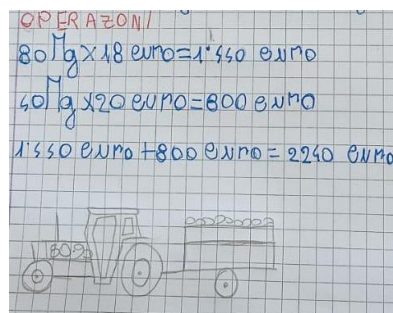 OPERAZONI
80Mg×18 euro=1.440 euro
40Mg×20 euro=800 euro
1.440 euro+800 euro=2240 euro